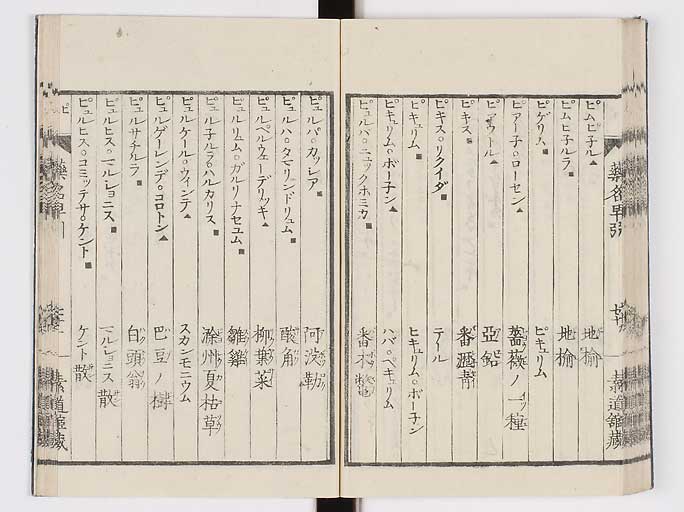 ピムピ子ル▲ 地榆
ピムピ子ルラ■ 地榆
ピゲリム■ ピキュリム
ピアー子○ローセン▲ 薔薇ノ一種
ピヤウトル▲ 亞鉛
ピキス■ 番瀝青
ピキス○リクイダ■ テール
ピキュリム■ ハバ○ペキュリム
ピキュリム○ボー子ン▲ ヒキュリム○ボー子ン
ピュルバ○ニュックホミカ■ 番木鼈
ピュルパ○カッシア■ 阿勃勒
ピュルハ○タマリンドリュム■ 酸角
ピュルペルウェーデリッキ▲ 柳葉菜
ピュルリュム○ガルリナセユム■ 雛雞
ピュル子ルラ○ハルカリス■ 滁州夏枯草
ピュルケール○ウィンデ▲ スカンモニウム
ピュルゲーレンデ○コロトン▲ 巴豆ノ樹
ピュルサチルラ■ 白頭翁
ピュルヒス○マルショニス■ マルショニス散
ピュルヒス○コミッテサ○ケント■ ケント散
藥名早引
素道館藏